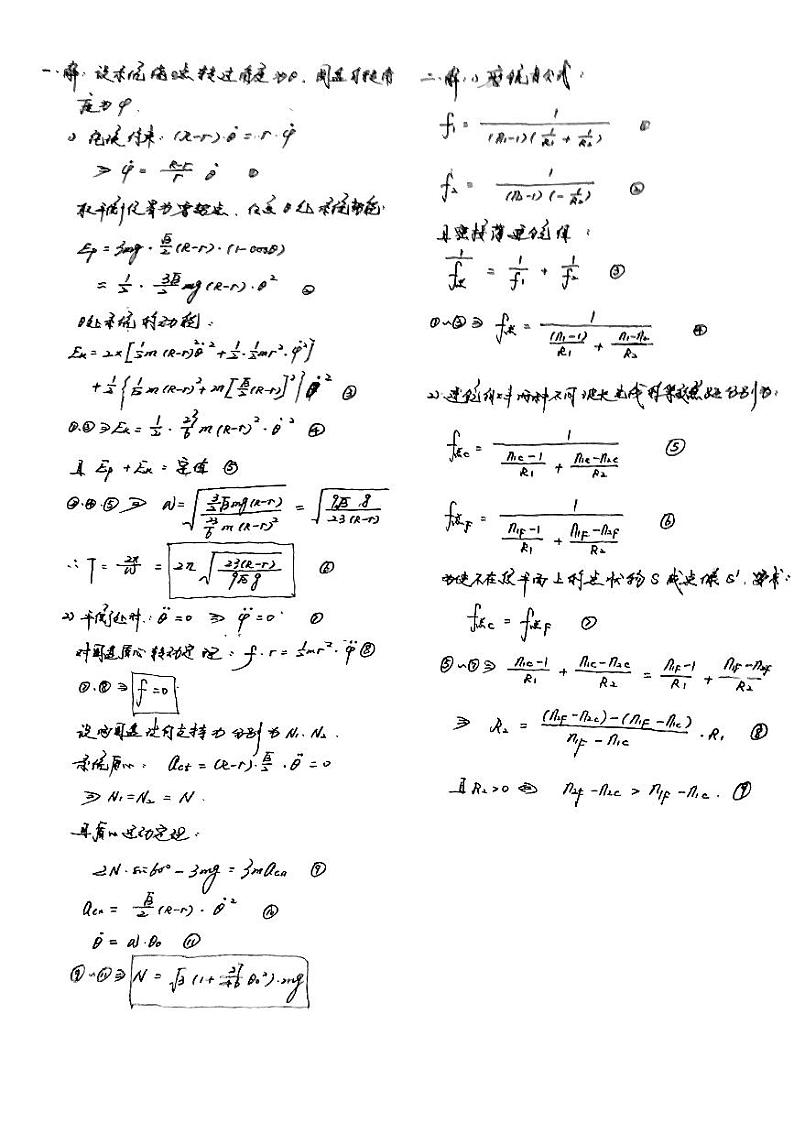 一. 解: 设系统绕O点转过角度为θ, 圆盘自转角
度为φ.
1) 纯滚约束: (R-r)·θ̇ = r·φ̇
⇒ φ̇ = (R-r)/r θ̇ ①
取平衡位置为零势点, 任意θ处系统势能:
Ep = 3mg·√3/2 (R-r)·(1-cosθ)
≈ 1/2 · 3√3/2 mg(R-r)·θ² ②
θ处系统的动能:
Ek = 2×[1/2 m(R-r)²θ̇² + 1/2·1/2mr²·φ̇²]
+ 1/2{1/12 m(R-r)² + m[√3/2(R-r)]²}θ̇² ③
①.③⇒Ek = 1/2 · 23/6 m(R-r)²·θ̇² ④
且 Ep + Ek = 定值 ⑤
②.④.⑤⇒ ω = √((3/2√3mg(R-r))/(23/6 m(R-r)²)) = √(9√3 g/23(R-r))
∴ T = 2π/ω = 2π√(23(R-r)/9√3g) ⑥
2) 平衡处时: θ̈ = 0 ⇒ φ̈ = 0 ⑦
对圆盘质心转动定理: f·r = 1/2mr²·φ̈ ⑧
⑦.⑧⇒ f = 0
设两圆盘过支持力分别为N₁.N₂.
系统质心: act = (R-r)·√3/2·θ̈ = 0
⇒ N₁=N₂ = N.
由质心运动定理:
2N·sin60° - 3mg = 3macn ⑨
acn = √3/2 (R-r)·θ̇² ⑩
θ̇ = ω·θ₀ ⑪
⑨~⑪⇒ N = √3(1+27/46 θ₀²)·mg
二. 解: 1) 磨镜者公式:
f₁ = 1/((n₁-1)(1/R₁ + 1/R₂)) ①
f₂ = 1/((n₂-1)(-1/R₂)) ②
且密接薄透镜组:
1/f = 1/f₁ + 1/f₂ ③
①~③⇒ f = 1/((n₁-1)/R₁ + (n₁-n₂)/R₂) ④
2) 透镜组对两种不同波长光线的等效焦距分别为:
fc = 1/((n₁c-1)/R₁ + (n₁c-n₂c)/R₂) ⑤
fF = 1/((n₁F-1)/R₁ + (n₁F-n₂F)/R₂) ⑥
为使不在焦平面上的点状物S成点像S', 要求:
fc = fF ⑦
⑤~⑦⇒ (n₁c-1)/R₁ + (n₁c-n₂c)/R₂ = (n₁F-1)/R₁ + (n₁F-n₂F)/R₂
⇒ R₂ = ((n₂F-n₂c)-(n₁F-n₁c))/(n₁F-n₁c) · R₁ ⑧
且R₂>0 ⇔ n₂F-n₂c > n₁F-n₁c. ⑨